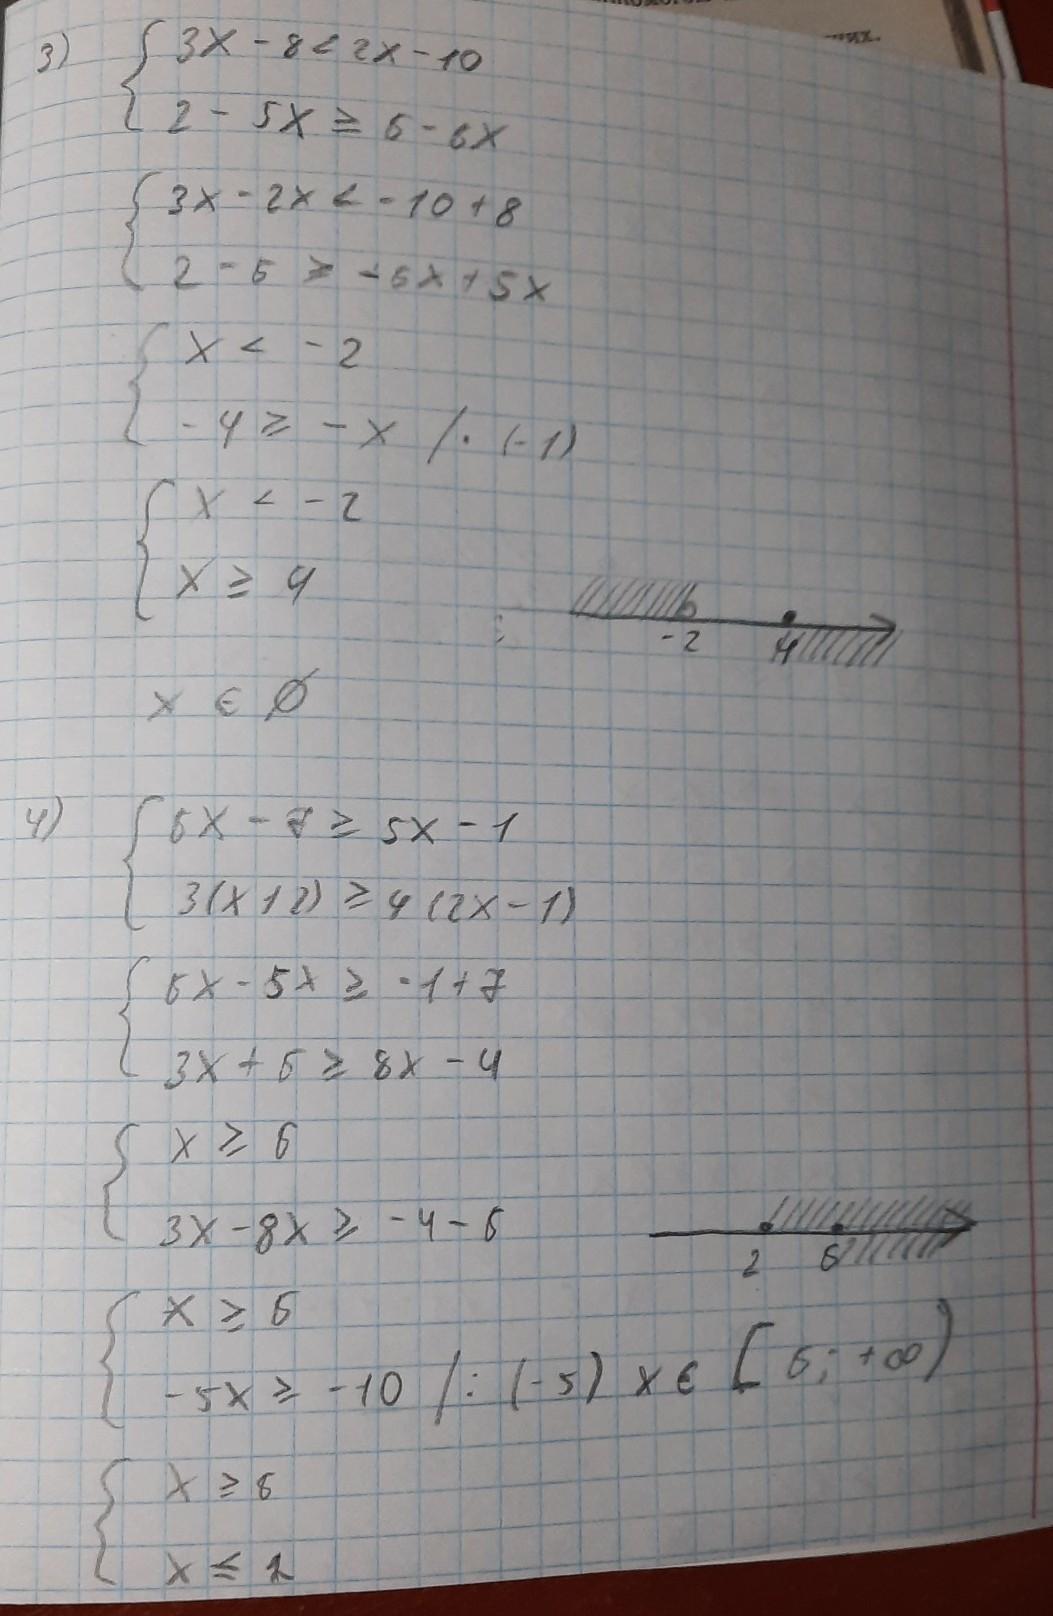 3) { 3x - 8 < 2x - 10
2 - 5x ≥ 6 - 6x
{ 3x - 2x < -10 + 8
2 - 6 ≥ -6x + 5x
{ x < -2
-4 ≥ -x / · (-1)
{ x < -2
x ≥ 4
-2 4
x ∈ ∅
4) { 6x - 7 ≥ 5x - 1
3(x+2) ≥ 4(2x-1)
{ 6x - 5x ≥ -1 + 7
3x + 6 ≥ 8x - 4
{ x ≥ 6
3x - 8x ≥ -4 - 6
2 6
{ x ≥ 6
-5x ≥ -10 / : (-5) x ∈ [6; +∞)
{ x ≥ 6
x ≤ 2